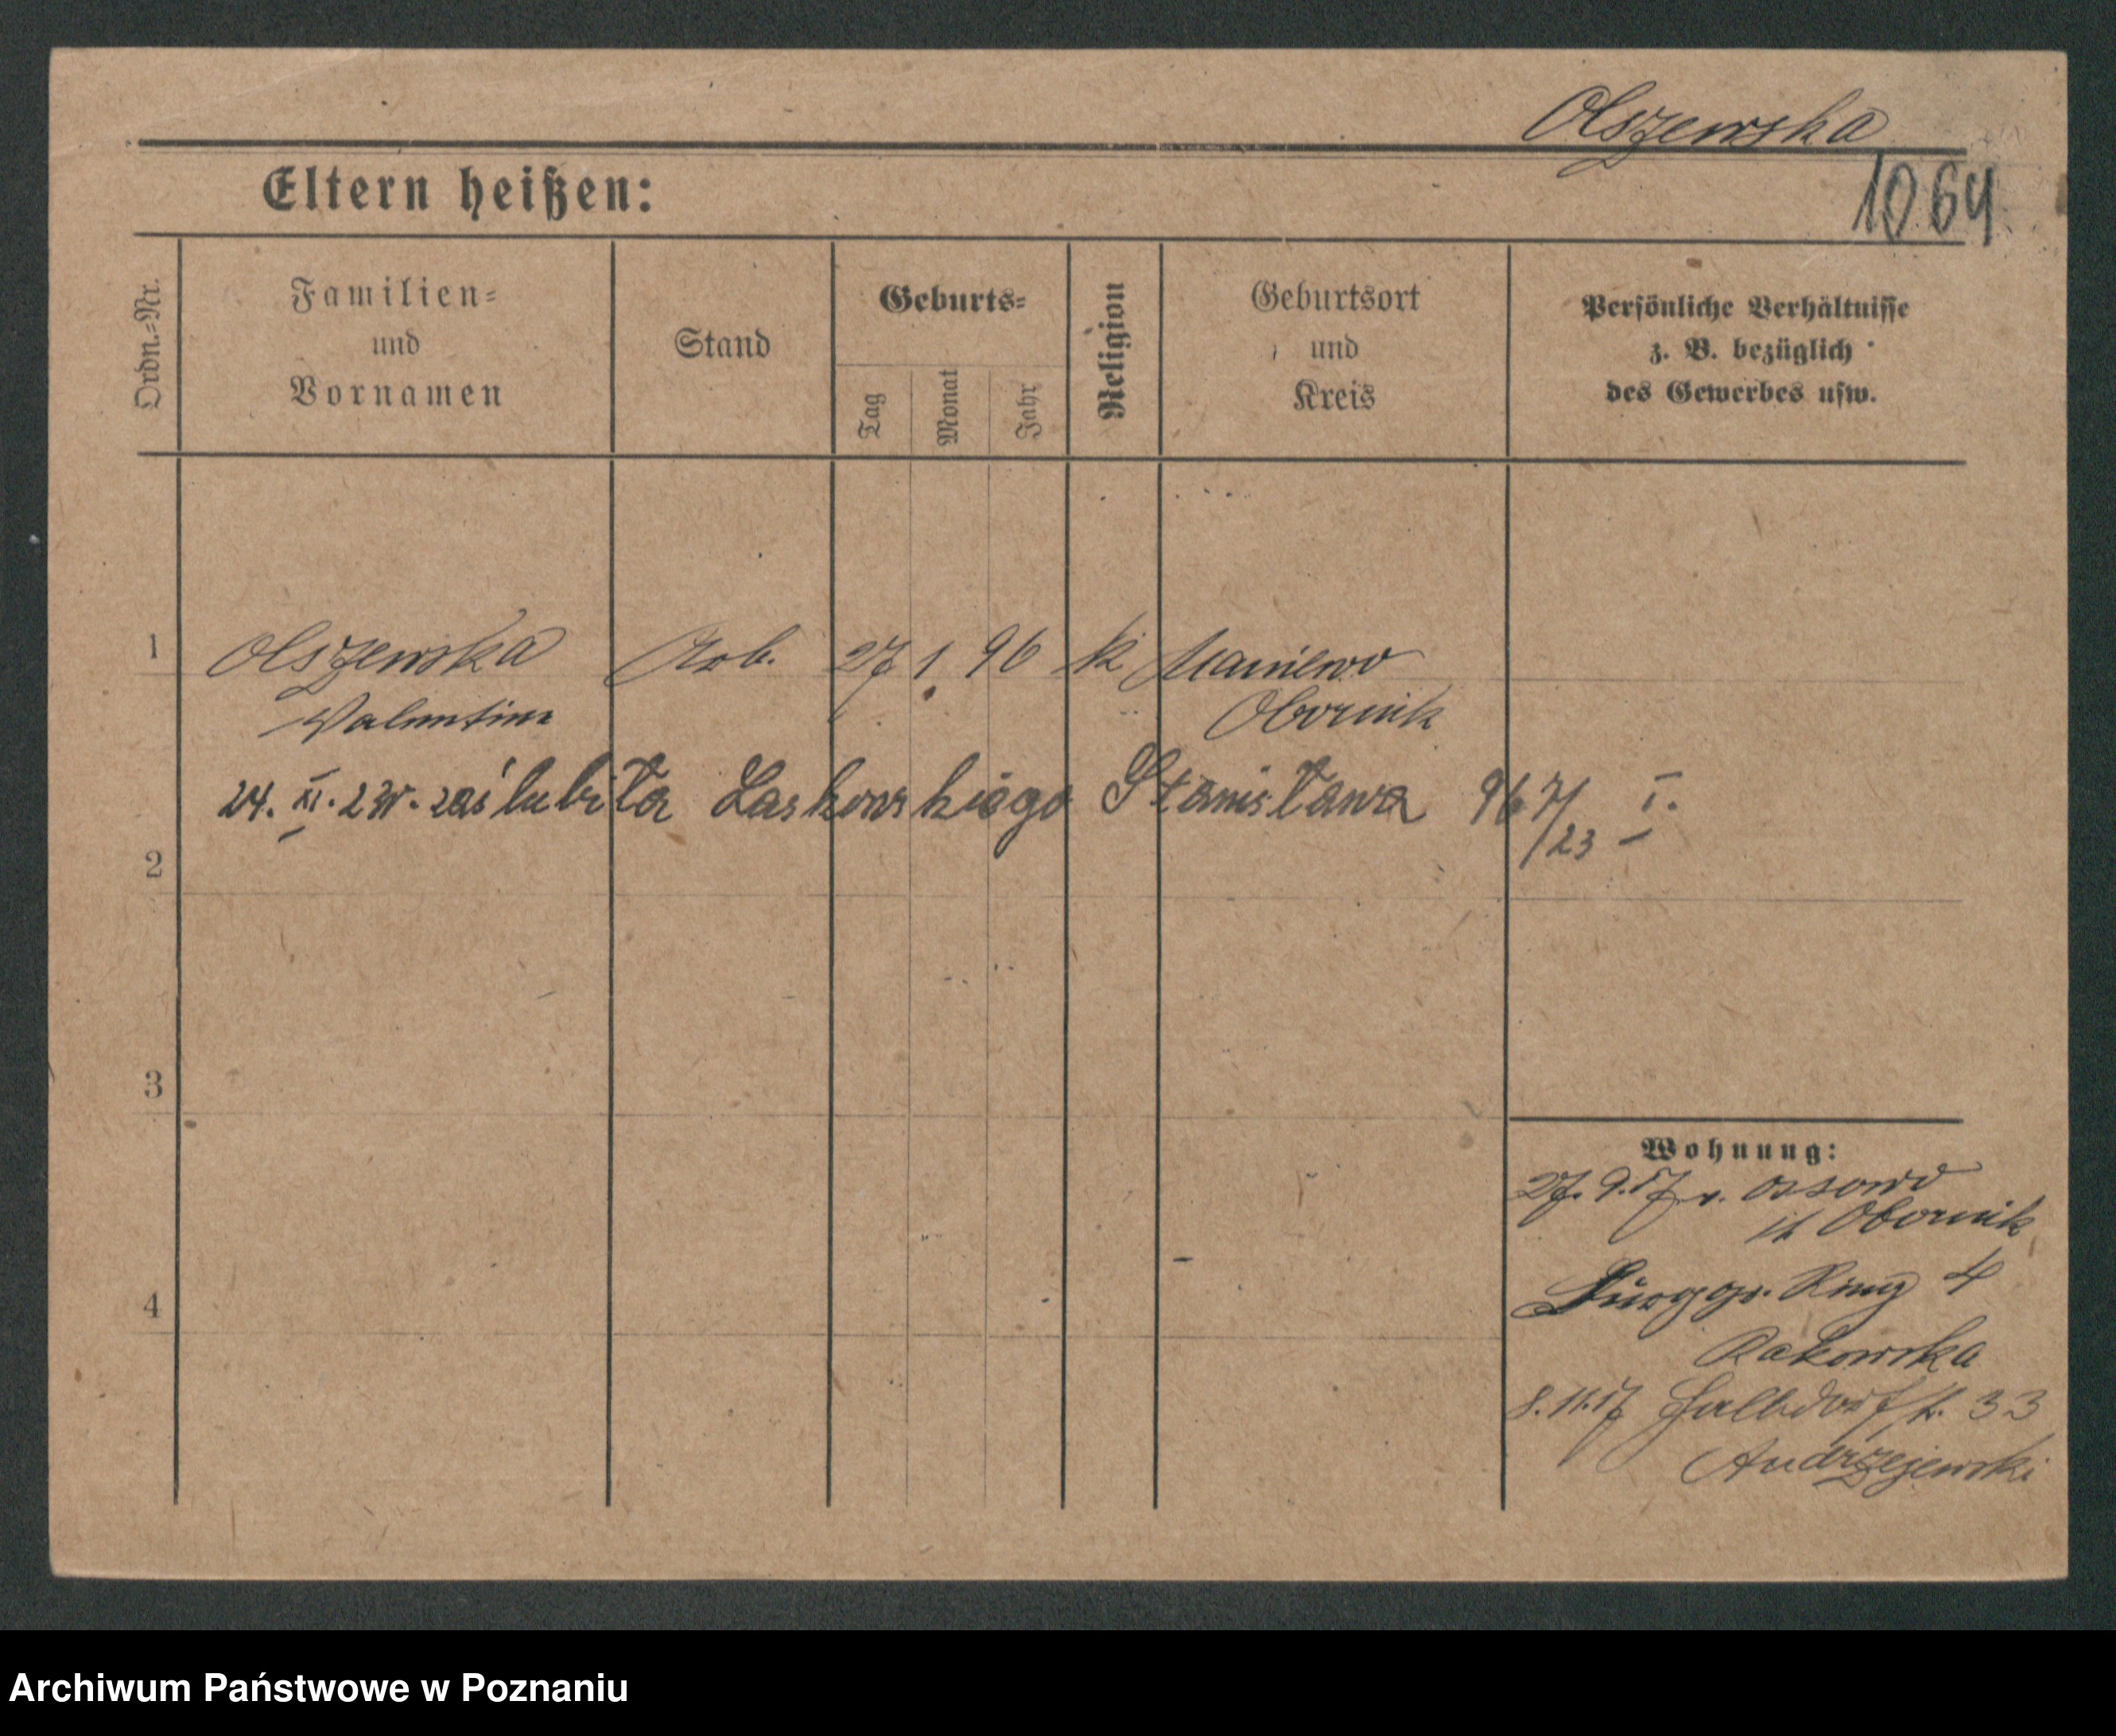 Olszewska
1064
Eltern heißen:
Ordn.=Nr.
Familien=
und
Vornamen
Stand
Geburts=
Tag
Monat
Jahr
Religion
Geburtsort
und
Kreis
Persönliche Verhältnisse
z. B. bezüglich
des Gewerbes usw.
1 Olszewska Arb. 27 1 96 k Maniewo
Valentine Obornik
24. XI. 23r. zaślubiła Laskowskiego Stanisława 967/23 I.
2
3
4
Wohnung:
27. 9. 17 v. Ossowo
Obornik
Ring 4
Rakowska
8. 11. 17 Halbdorfstr. 33
Andrzejewski
Archiwum Państwowe w Poznaniu